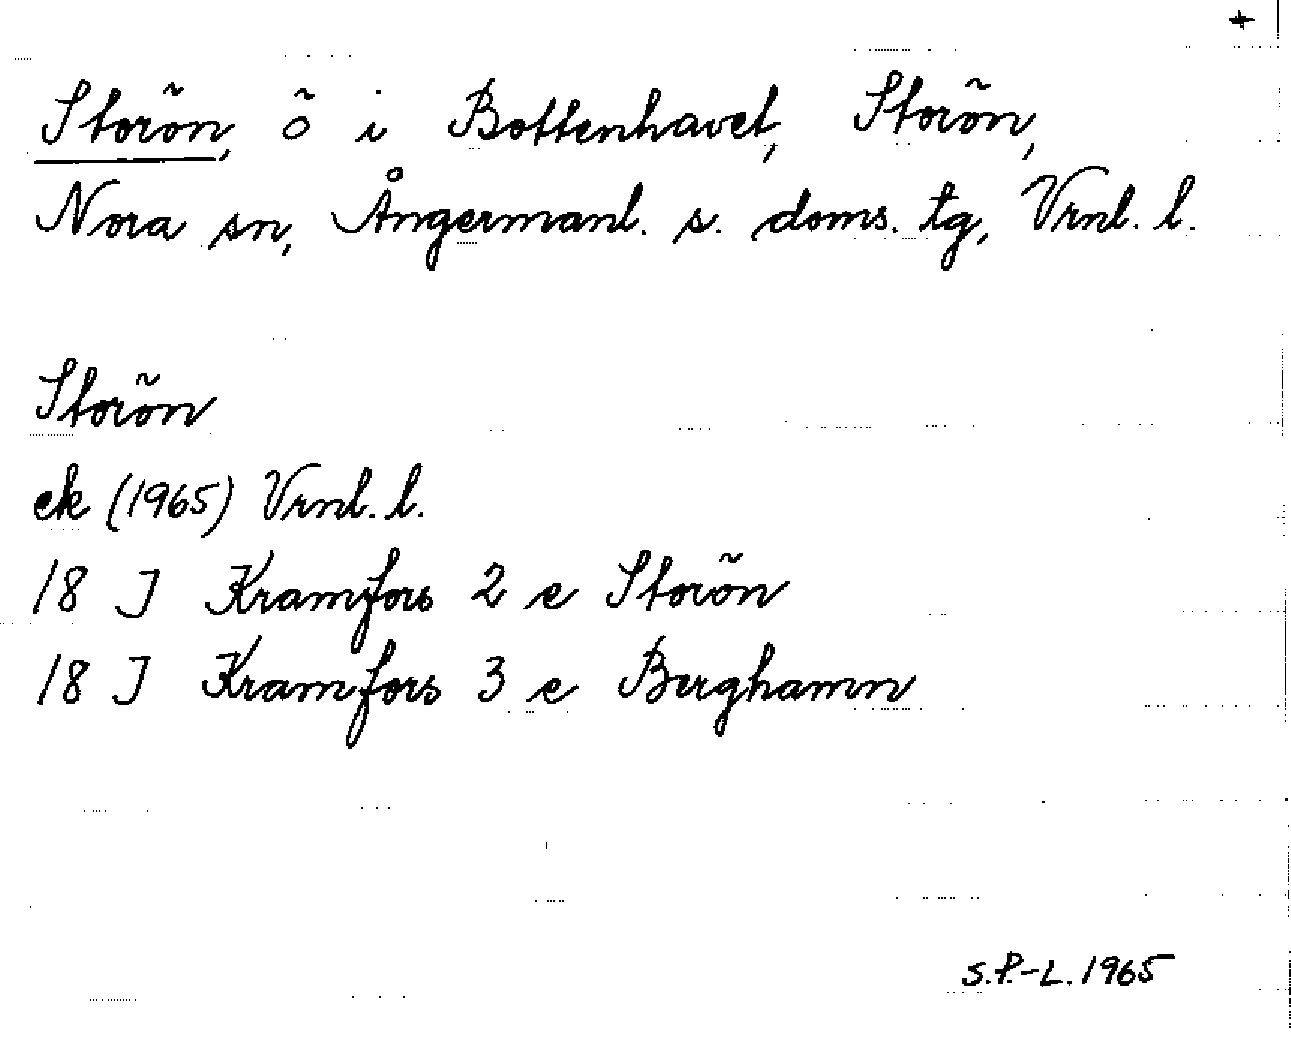 +
Storön, ö i Bottenhavet, Storön,
Nora sn, Ångermanl. s. doms. tg, Vrnl. l.
Storön
ek (1965) Vrnl. l.
18 J Kramfors 2 e Storön
18 J Kramfors 3 e Berghamn
S.P.-L. 1965